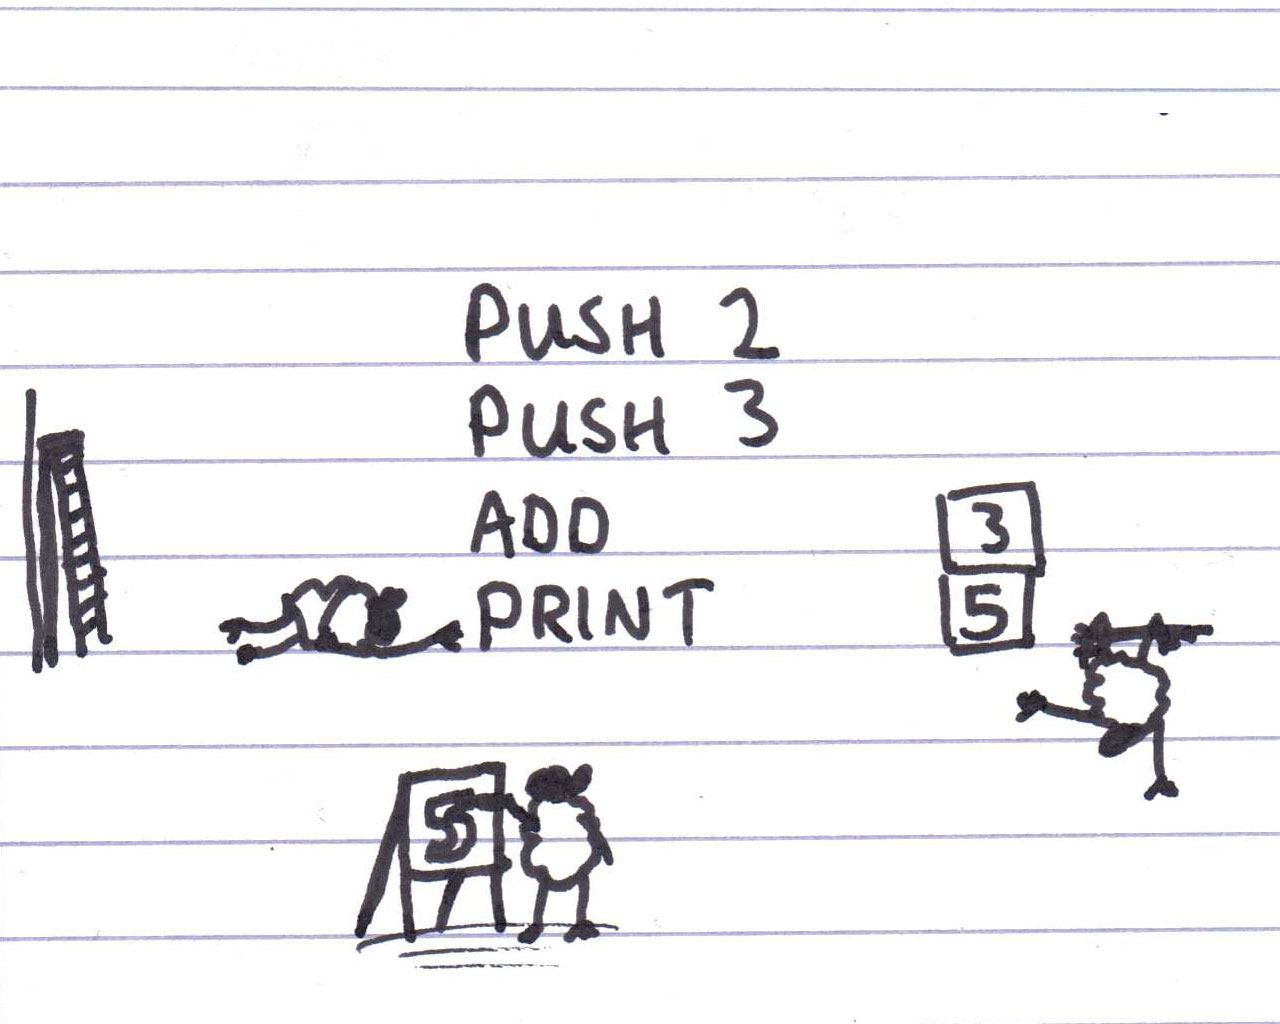 PUSH 2
PUSH 3
ADD
PRINT
3
5
5